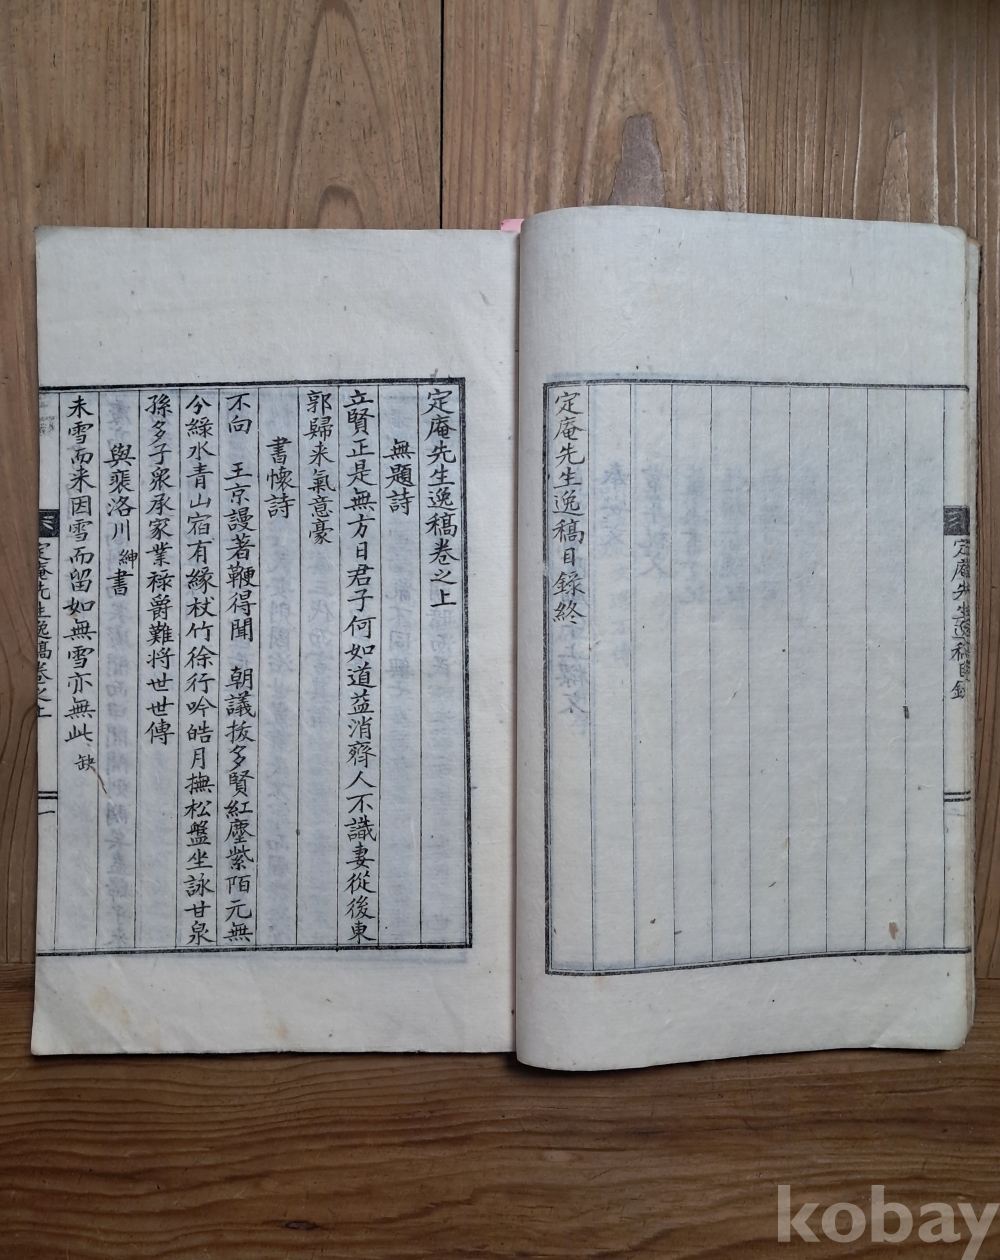 定庵先生逸稿目錄終
定庵先生逸稿目錄
定庵先生逸稿卷之上
無題詩
立賢正是無方日君子何如道益消齊人不識妻從後東
郭歸来氣意豪
書懷詩
不向 王京謾著鞭得聞 朝議拔多賢紅塵紫陌元無
兮綠水青山宿有緣杖竹徐行吟皓月撫松盤坐詠甘泉
孫多子衆承家業祿爵難將世世傳
與裴洛川紳書
未雪而来因雪而留如無雪亦無此缺
定庵先生逸稿卷之上
一
kobay